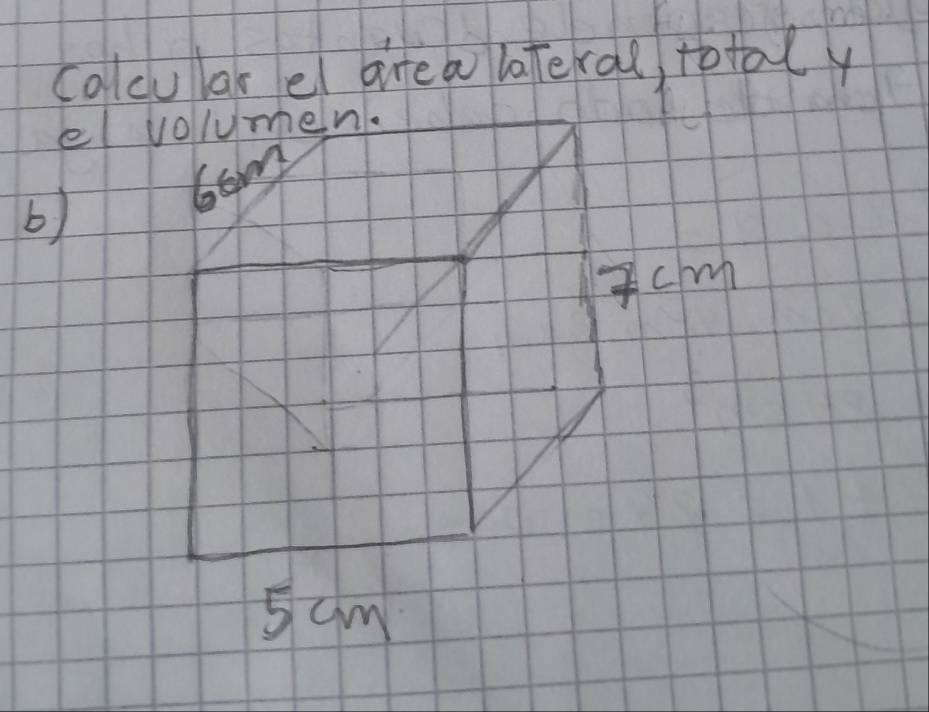 Calcular el área lateral, total y
el volumen.
b)
6cm
7cm
5cm